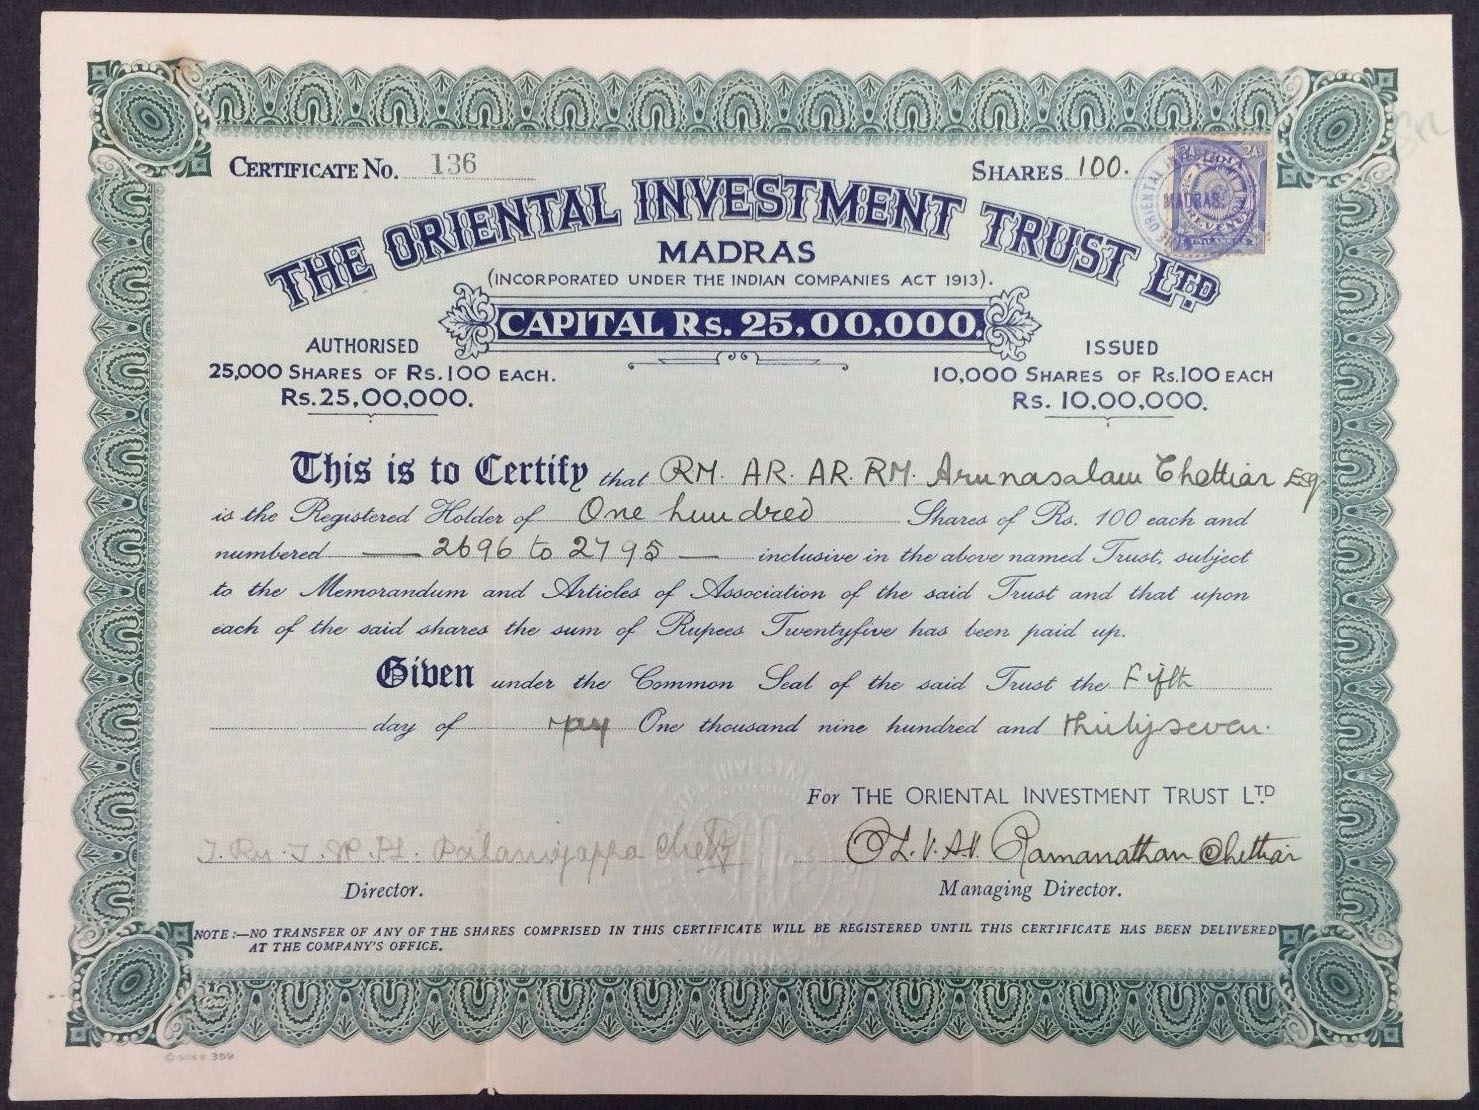 CERTIFICATE NO. 136
SHARES 100.
THE ORIENTAL INVESTMENT TRUST LTD
MADRAS
(INCORPORATED UNDER THE INDIAN COMPANIES ACT 1913).
CAPITAL Rs. 25,00,000.
AUTHORISED
25,000 SHARES OF Rs.100 EACH.
Rs.25,00,000.
ISSUED
10,000 SHARES OF Rs.100 EACH
Rs. 10,00,000.
This is to Certify that RM. AR. AR. RM. Arunasalam Chettiar Esq
is the Registered Holder of One hundred Shares of Rs. 100 each and
numbered — 2696 to 2795 — inclusive in the above named Trust, subject
to the Memorandum and Articles of Association of the said Trust and that upon
each of the said shares the sum of Rupees Twentyfive has been paid up.
Given under the Common Seal of the said Trust the Fifth
day of May One thousand nine hundred and thirtyseven.
For THE ORIENTAL INVESTMENT TRUST LTD
Palaniyappa Chetty
Ramanathan Chettiar
Director.
Managing Director.
NOTE:—NO TRANSFER OF ANY OF THE SHARES COMPRISED IN THIS CERTIFICATE WILL BE REGISTERED UNTIL THIS CERTIFICATE HAS BEEN DELIVERED
AT THE COMPANY'S OFFICE.